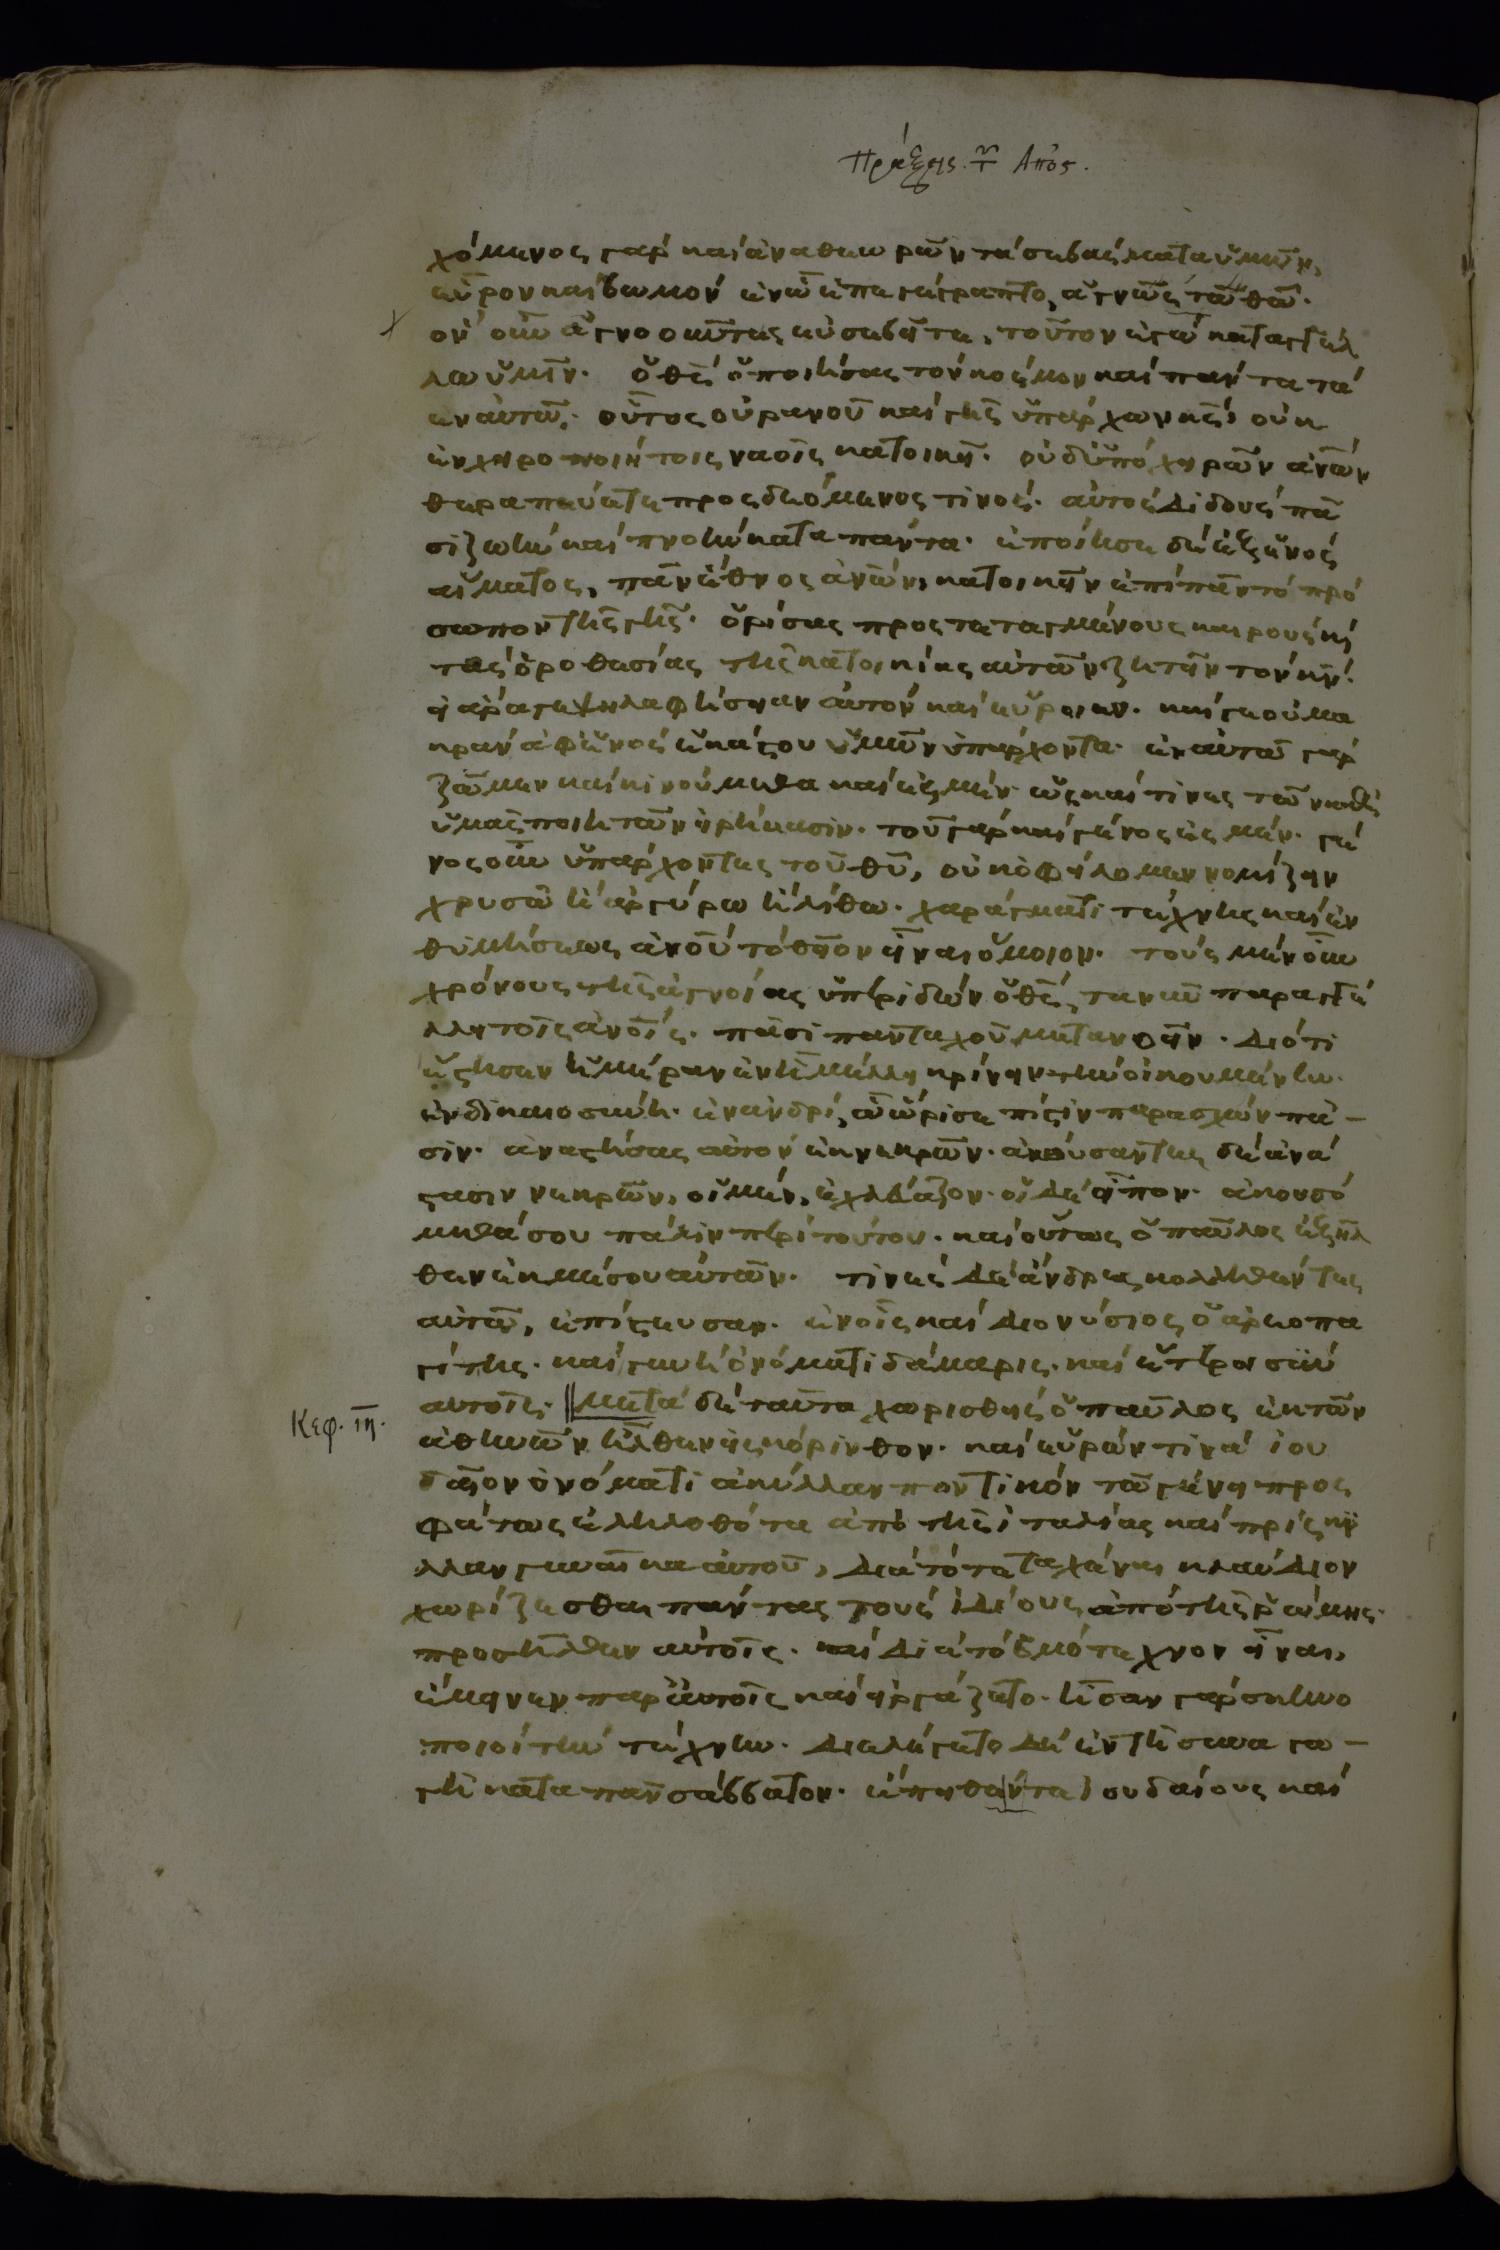 Πράξεις τ Αποσ.
χόμενος γαρ και ἀναθεωρῶν τά σεβάσματα ὑμῶν,
εὗρον και βωμόν ἐν ὧ ἐπεγέγραπτο, ἀγνώστω θω.
ὅν οὖν ἀγνοοῦντες εὐσεβεῖτε, τοῦτον ἐγώ καταγγέλ
λω ὑμῖν. ὁ θς ὁ ποιήσας τόν κόσμον και πάντα τά
ἐν αὐτῶ. οὗτος οὐρανοῦ και γῆς ὑπάρχων κς οὐκ
ἐν χειροποιήτοις ναοῖς κατοικεῖ. οὐδ ὑπό χειρῶν ἀνων
θεραπεύεται προσδεόμενος τινός. αὐτος διδούς πᾶ
σι ζωήν και πνοήν κατα πάντα. ἐποίησε δέ ἐξ ἑνός
αἵματος, πᾶν ἔθνος ἀνων, κατοικεῖν ἐπί πᾶν τό πρό
σωπον τῆς γῆς. ὁρίσας προστεταγμένους καιρούς και
τάς ὁροθεσίας τῆς κατοικίας αὐτῶν ζητεῖν τόν κν.
εἰ ἄρα γε ψηλαφήσειαν αὐτόν και εὕροιεν. και γε οὐ μα
κράν ἀφ ἑνός ἑκάστου ὑμῶν ὑπάρχοντα. ἐν αὐτῶ γάρ
ζῶμεν και κινούμεθα και ἐσμέν. ὡς και τινες τῶν καθ
ὑμᾶς ποιητῶν εἰρήκασιν. τοῦ γάρ και γένος ἐσμέν. γέ
νος οὖν ὑπάρχοντες τοῦ θυ, οὐκ ὀφείλομεν νομίζειν
χρυσῶ ἤ ἀργύρω ἤ λίθω. χαράγματι τέχνης και ἐν
θυμήσεως ἀνου τό θεῖον εἶναι ὅμοιον. τούς μέν οὖν
χρόνους τῆς ἀγνοίας ὑπεριδών ὁ θς, τανῦν παραγγέ
λλει τοῖς ἀνοις. πᾶσι πανταχοῦ μετανοεῖν. διότι
ἔστησεν ἡμέραν ἐν ἧ μέλλει κρίνειν τήν οἰκουμένην.
ἐν δικαιοσύνη. ἐν ἀνδρί, ὧ ὥρισε πίστιν παρασχών πᾶ-
σιν. ἀναστήσας αὐτόν ἐκ νεκρῶν. ἀκούσαντες δέ ἀνά
στασιν νεκρῶν, οἱ μέν, ἐχλεύαζον. οἱ δέ εἶπον. ἀκουσό
μεθά σου πάλιν περί τούτου. και οὕτως ὁ παῦλος ἐξῆλ
θεν ἐκ μέσου αὐτῶν. τινές δέ ἄνδρες κολληθέντες
αὐτῶ, ἐπίστευσαν. ἐν οἷς και διονύσιος ὁ ἀρεοπα
γίτης. και γυνή ὀνόματι δάμαρις. και ἕτεροι σύν
αὐτοῖς. μετά δέ ταῦτα χωρισθείς ὁ παῦλος ἐκ τῶν
Κεφ. ιη.
ἀθηνῶν ἦλθεν εἰς κόρινθον. και εὑρών τινά ἰου
δαῖον ὀνόματι ἀκύλλαν ποντικόν τῶ γένει προσ
φάτως ἐληλυθότα ἀπό τῆς ἰταλίας και πρίσκι
λλαν γυναῖκα αὐτοῦ, διά τό τεταχέναι κλαύδιον
χωρίζεσθαι πάντας τούς ἰδίους ἀπό τῆς ῥώμης.
προσῆλθεν αὐτοῖς. και διά τό ὁμότεχνον εἶναι,
ἔμεινεν παρ αὐτοῖς και εἰργάζετο. ἦσαν γάρ σκηνο
ποιοί τήν τέχνην. διελέγετο δέ ἐν τῆ συναγω-
γῆ κατα πᾶν σάββατον. ἔπειθέν τε ἰουδαίους και